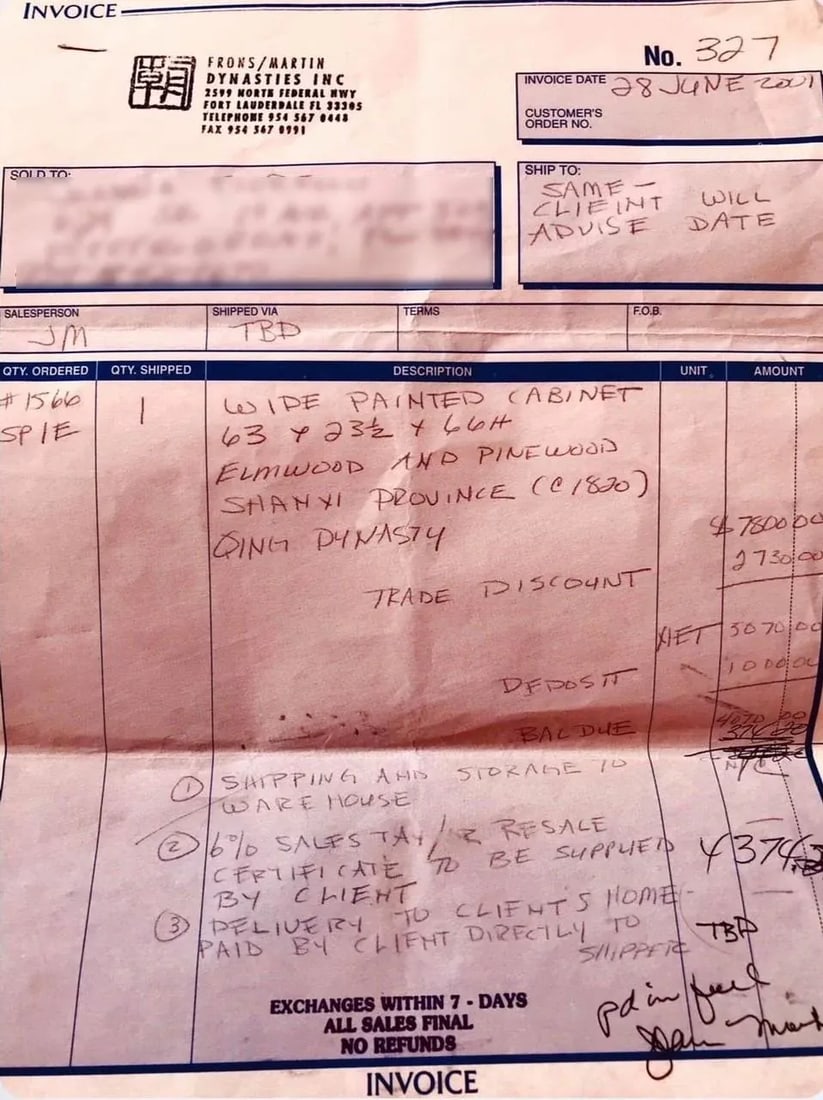 INVOICE
No. 327
朝
FRONS/MARTIN
DYNASTIES INC
2599 NORTH FEDERAL HWY
FORT LAUDERDALE FL 33305
TELEPHONE 954 567 0448
FAX 954 567 0991
INVOICE DATE 28 JUNE 2001
CUSTOMER'S
ORDER NO.
SOLD TO:
SHIP TO:
SAME -
CLIEINT WILL
ADVISE DATE
SALESPERSON
JM
SHIPPED VIA
TBD
TERMS
F.O.B.
QTY. ORDERED QTY. SHIPPED DESCRIPTION UNIT AMOUNT
#1566 1 WIDE PAINTED CABINET
SP1E 63 x 23½ x 66H
ELMWOOD AND PINEWOOD
SHANXI PROVINCE (C1820)
QING DYNASTY $7800 00
2730 00
TRADE DISCOUNT
NET 5070 00
DEPOSIT 1000 00
BAL DUE 4070 00
① SHIPPING AND STORAGE TO N/C
WAREHOUSE
② 6% SALES TAX/R RESALE
CERTIFICATE TO BE SUPPLIED 4374
BY CLIENT
③ DELIVERY TO CLIENT'S HOME-
PAID BY CLIENT DIRECTLY TO TBD
SHIPPER
pd in full
EXCHANGES WITHIN 7 - DAYS
ALL SALES FINAL
NO REFUNDS
INVOICE